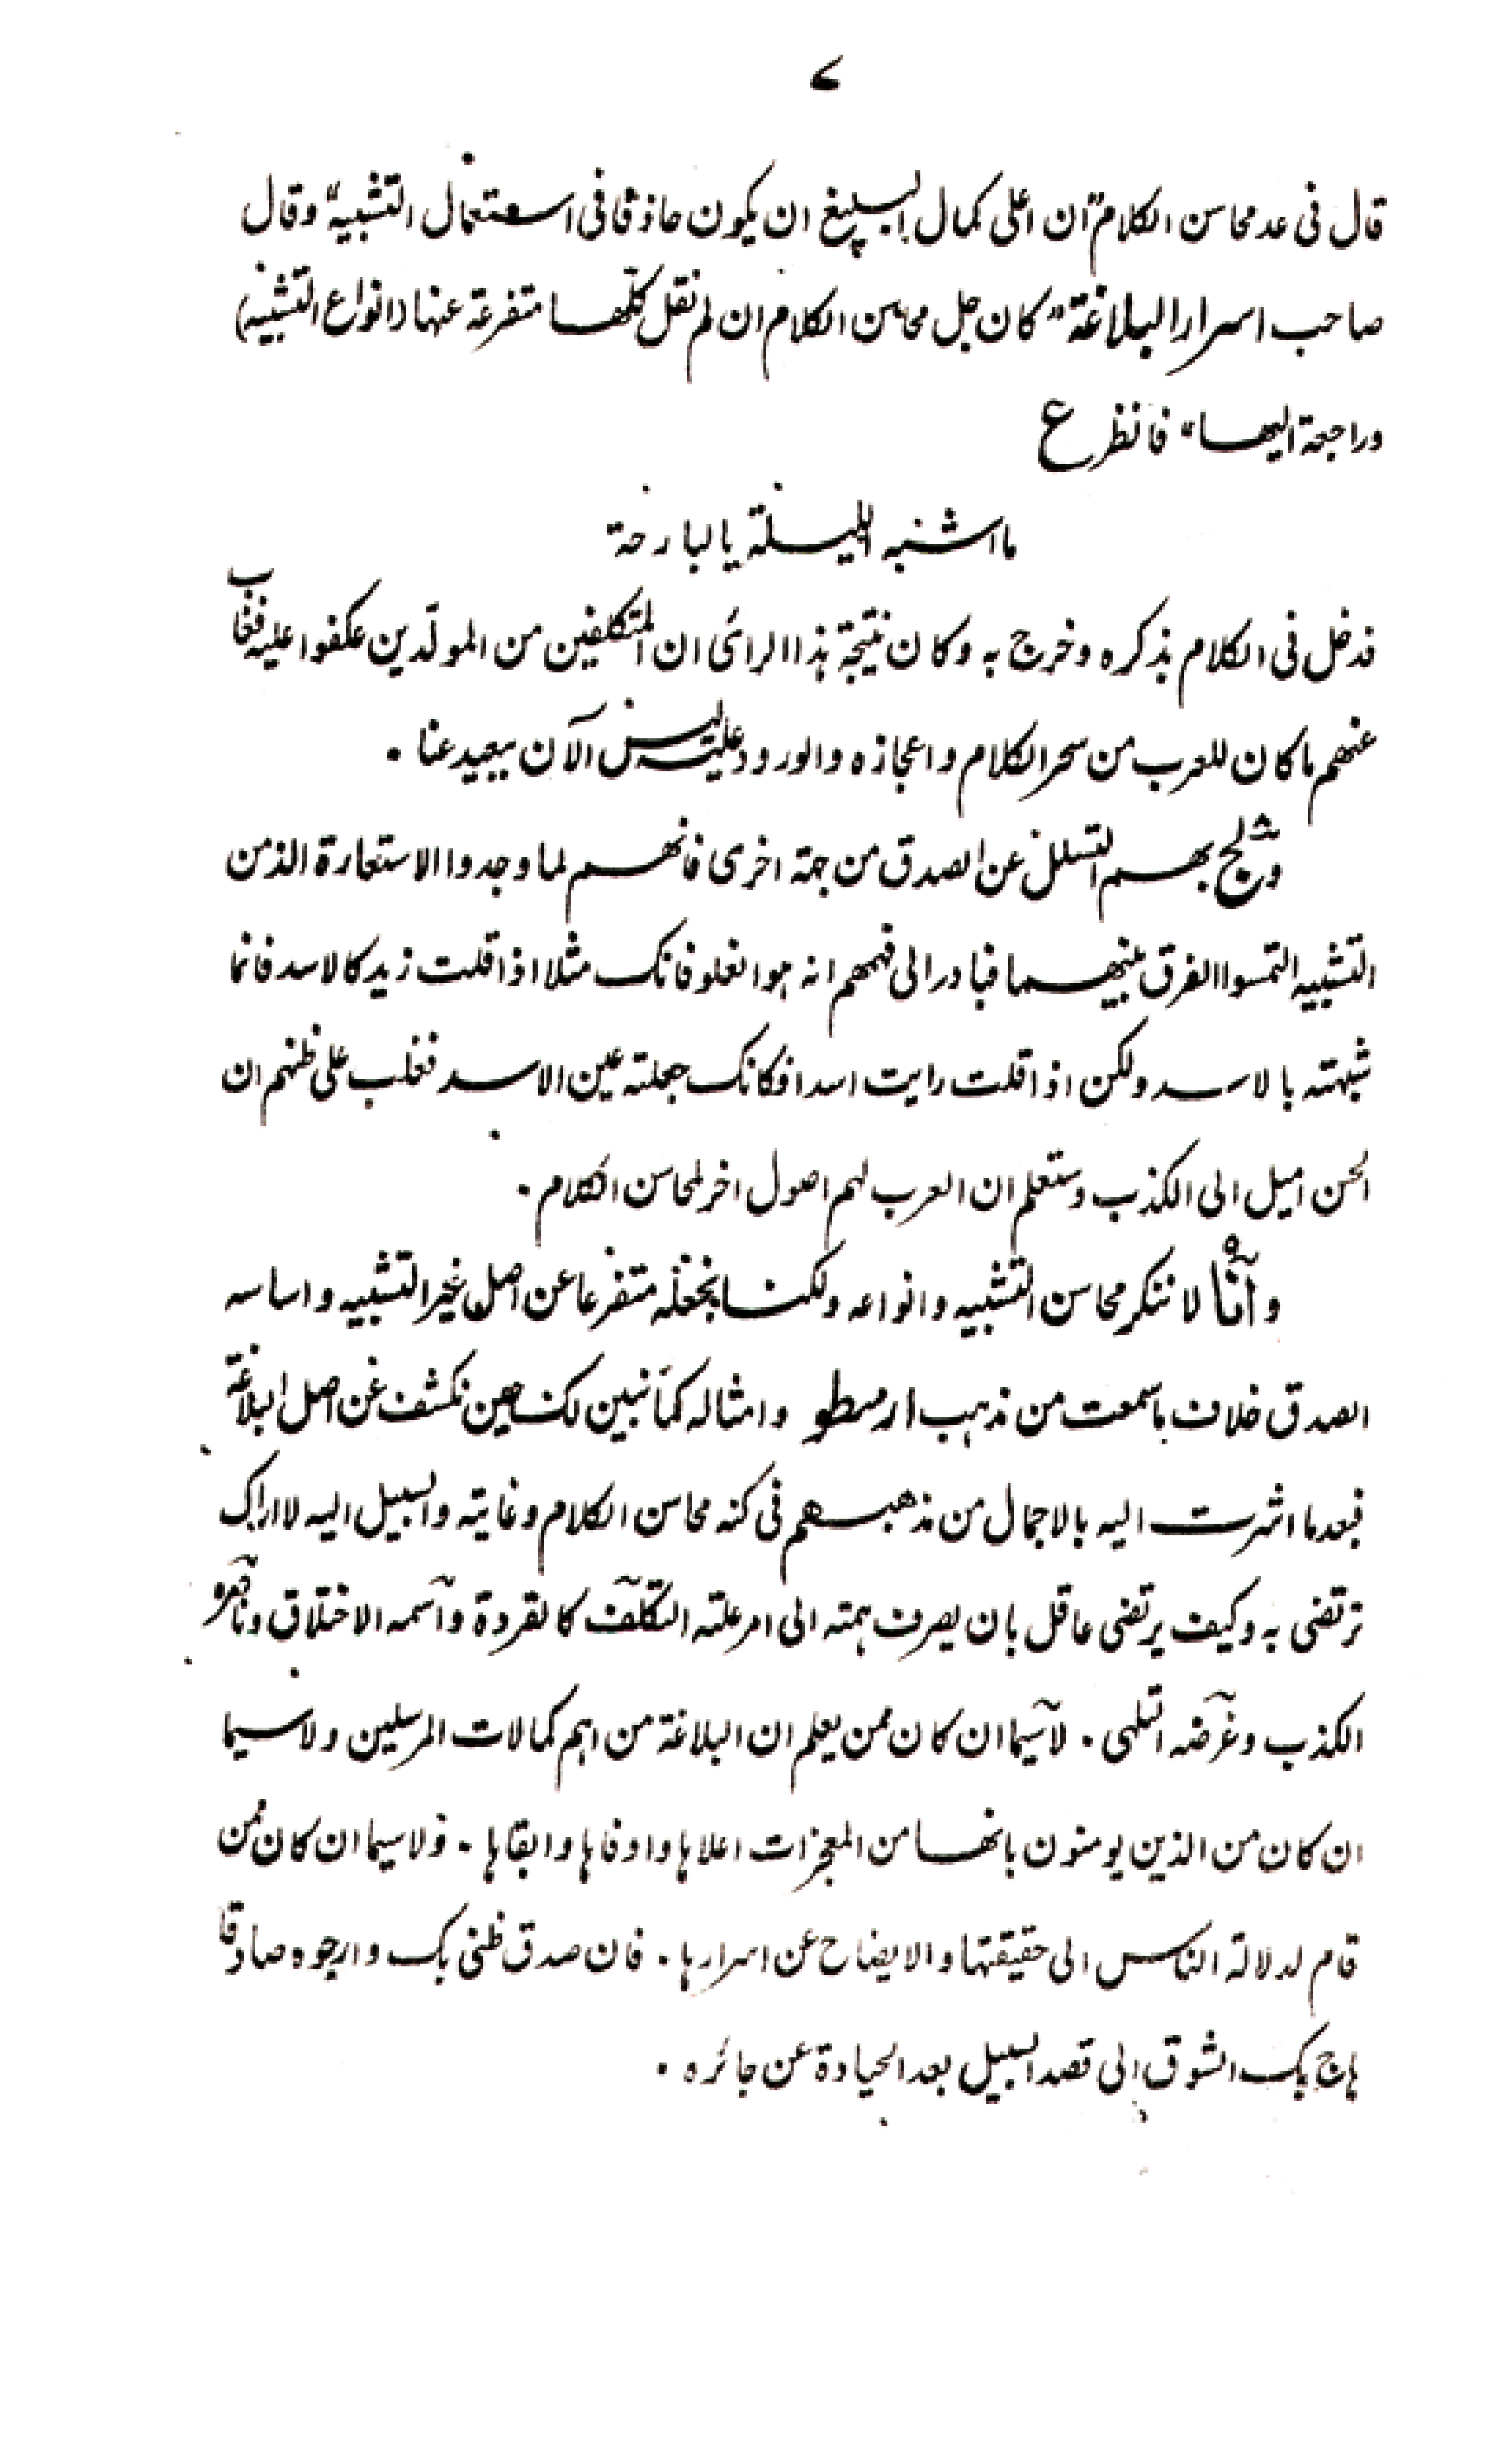 ۷
قال فی عد محاسن الکلام "ان اعلی کمال البلیغ ان یکون حاذقا فی استعمال التشبیه" وقال
صاحب اسرار البلاغة "کان جل محاسن الکلام ان لم نقل کلها متفرعة عنها (انواع التشبیه)
وراجعة الیها" فانظر ع
ما اشبه اللیلة بالبارحة
فدخل فی الکلام بذکره وخرج به وکان نتیجة هذا الرائ ان المتکلفین من المولّدین عکفوا علیه فغاب
عنهم ما کان للعرب من سحر الکلام واعجازه والورود علیه لیس الآن ببعید عنا ۔
ولج بهم التسلل عن الصدق من جهة اخری فانهم لما وجدوا الاستعارة الذ من
التشبیه التمسوا الفرق بینهما فبادر الی فهمهم انه هو الغلو فانک مثلا اذا قلت زید کالاسد فانما
شبهته بالاسد ولکن اذا قلت رایت اسدا فکانک جعلته عین الاسد فغلب علی ظنهم ان
الحسن امیل الی الکذب وستعلم ان العرب لهم اصول اخر لمحاسن الکلام ۔
وانّا لا ننکر محاسن التشبیه وانواعه ولکنا نجعله متفرعا عن اصل غیر التشبیه واساسه
الصدق خلاف ما سمعت من مذهب ارسطو وامثاله کما نبین لک حین نکشف عن اصل البلاغة
فبعد ما اشرت الیه بالاجمال من مذهبهم فی کنه محاسن الکلام وغایته والسبیل الیه لا اراک
ترتضی به وکیف یرتضی عاقل بان یصرف همته الی امر علته التکلف کالقردة واسمه الاختلاق و
الکذب وغرضه التلهی ۔ لا سیما ان کان ممن یعلم ان البلاغة من اهم کمالات المرسلین ولا سیما
ان کان من الذین یومنون بانها من المعجزات اعلاها واوفاها وابقاها ۔ ولا سیما ان کان ممن
قام لدلالة الناس الی حقیقتها والایضاح عن اسرارها ۔ فان صدق ظنی بک وارجوه صادقا
هاج بک الشوق الی قصد السبیل بعد الحیادة عن جائره ۔